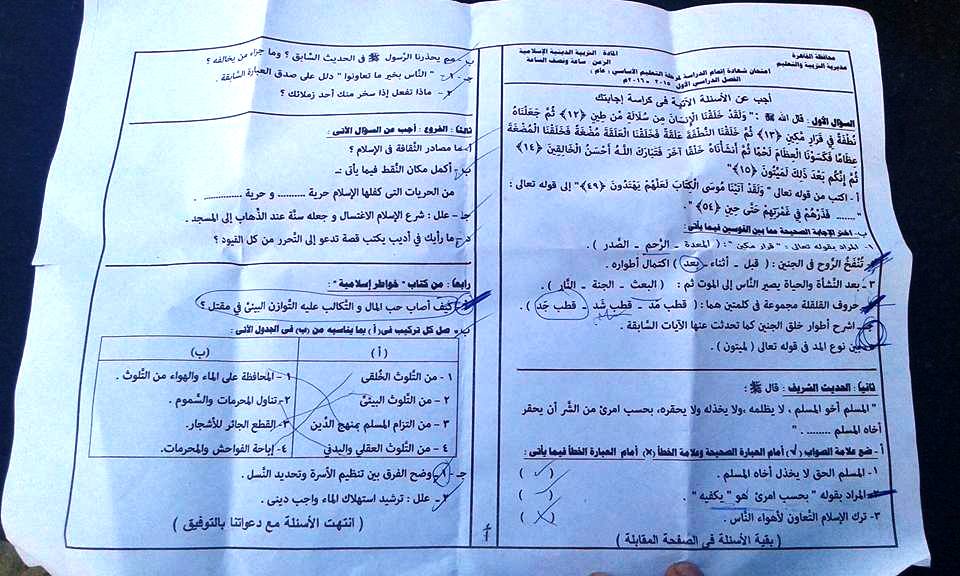 محافظة القاهرة
مديرية التربية والتعليم
المادة : التربية الدينية الإسلامية
الزمن : ساعة ونصف الساعة
امتحان شهادة إتمام الدراسة لمرحلة التعليم الأساسى : عام :
الفصل الدراسى الأول ٢٠١٥ - ٢٠١٦م
أجب عن الأسئلة الآتية فى كراسة إجابتك
السؤال الأول : قال الله ﷻ : " وَلَقَدْ خَلَقْنَا الْإِنسَانَ مِن سُلَالَةٍ مِّن طِينٍ ﴿١٢﴾ ثُمَّ جَعَلْنَاهُ
نُطْفَةً فِي قَرَارٍ مَّكِينٍ ﴿١٣﴾ ثُمَّ خَلَقْنَا النُّطْفَةَ عَلَقَةً فَخَلَقْنَا الْعَلَقَةَ مُضْغَةً فَخَلَقْنَا الْمُضْغَةَ
عِظَامًا فَكَسَوْنَا الْعِظَامَ لَحْمًا ثُمَّ أَنشَأْنَاهُ خَلْقًا آخَرَ فَتَبَارَكَ اللَّـهُ أَحْسَنُ الْخَالِقِينَ ﴿١٤﴾
ثُمَّ إِنَّكُم بَعْدَ ذَٰلِكَ لَمَيِّتُونَ ﴿١٥﴾"
أ - اكتب من قوله تعالى " وَلَقَدْ آتَيْنَا مُوسَى الْكِتَابَ لَعَلَّهُمْ يَهْتَدُونَ ﴿٤٩﴾" إلى قوله تعالى :
"....... فَذَرْهُمْ فِي غَمْرَتِهِمْ حَتَّىٰ حِينٍ ﴿٥٤﴾ " .
ب- اختر الإجابة الصحيحة مما بين القوسين فيما يأتى :
١- المراد بقوله تعالى : " قرار مكين " : ( المعدة - الرَّحِم - الصَّدر ) .
تُنْفَخُ الرُّوح فى الجنين : ( قبل - أثناء - بعد ) اكتمال أطواره .
٣ - بعد النشأة والحياة يصير النَّاس إلى الموت ثم : ( البعث - الجنة - النَّار ) .
حروف القلقلة مجموعة فى كلمتين هما : ( قطب مَد - قطب شَد - قطب جَد ) .
جـ - اشرح أطوار خلق الجنين كما تحدثت عنها الآيات السَّابقة .
بين نوع المد فى قوله تعالى ( لميتون ) .
ثانياً : الحديث الشريف : قال ﷺ :
" المسلم أخو المسلم ، لا يظلمه ،ولا يخذله ولا يحقره، بحسب امرئ من الشَّر أن يحقر
أخاه المسلم ........ . "
أ - ضع علامة الصواب (√) أمام العبارة الصحيحة وعلامة الخطأ (×) أمام العبارة الخطأ فيما يأتى :
١- المسلم الحق لا يخذل أخاه المسلم . ( ✓ )
٢- المراد بقوله " بحسب امرئ " هو " يكفيه " . ( ✓ )
٣- ترك الإسلام التعاون لأهواء النَّاس . ( × )
( بقية الأسئلة فى الصفحة المقابلة )
ب - مم يحذرنا الرَّسول ﷺ فى الحديث السَّابق ؟ وما جزاء من يخالفه ؟
جـ - ١- " النَّاس بخير ما تعاونوا " دلل على صدق العبارة السَّابقة .
٢ - ماذا تفعل إذا سخر منك أحد زملائك ؟
ثالثاً : الفروع : أجب عن السؤال الآتى :
أ- ما مصادر الثَّقافة فى الإسلام ؟
ب - أكمل مكان النُّقط فيما يأتى :ـ
من الحريات التى كفلها الإسلام حرية .......... و حرية .............. .
جـ - علل : شرع الإسلام الاغتسال و جعله سنَّة عند الذَّهاب إلى المسجد .
د - ما رأيك فى أديب يكتب قصة تدعو إلى التَّحرر من كل القيود ؟
رابعاً : من كتاب " خواطر إسلامية " :
كيف أصاب حب المال و التَّكالب عليه التَّوازن البيئىَّ فى مقتل ؟
ب - صل كل تركيب فى( أ ) بما يناسبه من (ب) فى الجدول الآتى :
( أ ) (ب)
١ - من التَّلوث الخُلقى ١ - المحافظة على الماء والهواء من التَّلوث .
٢ - من التَّلوث البيئىَّ ٢ - تناول المحرمات والسُّموم .
٣ - من التزام المسلم بمنهج الدِّين ٣- القطع الجائر للأشجار.
٤ - من التَّلوث العقلى والبدنى ٤- إباحة الفواحش والمحرمات.
جـ - ١- وضح الفرق بين تنظيم الأسرة وتحديد النَّسل .
٢ - علل : ترشيد استهلاك الماء واجب دينى .
( انتهت الأسئلة مع دعواتنا بالتوفيق )